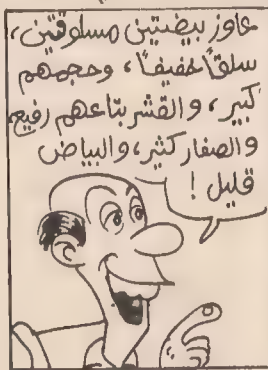 عاوز بيضتين مسلوقتين،
سلقاً خفيفاً، وحجمهم
كبير، والقشر بتاعهم رفيع،
والصفار كثير، والبياض
قليل !